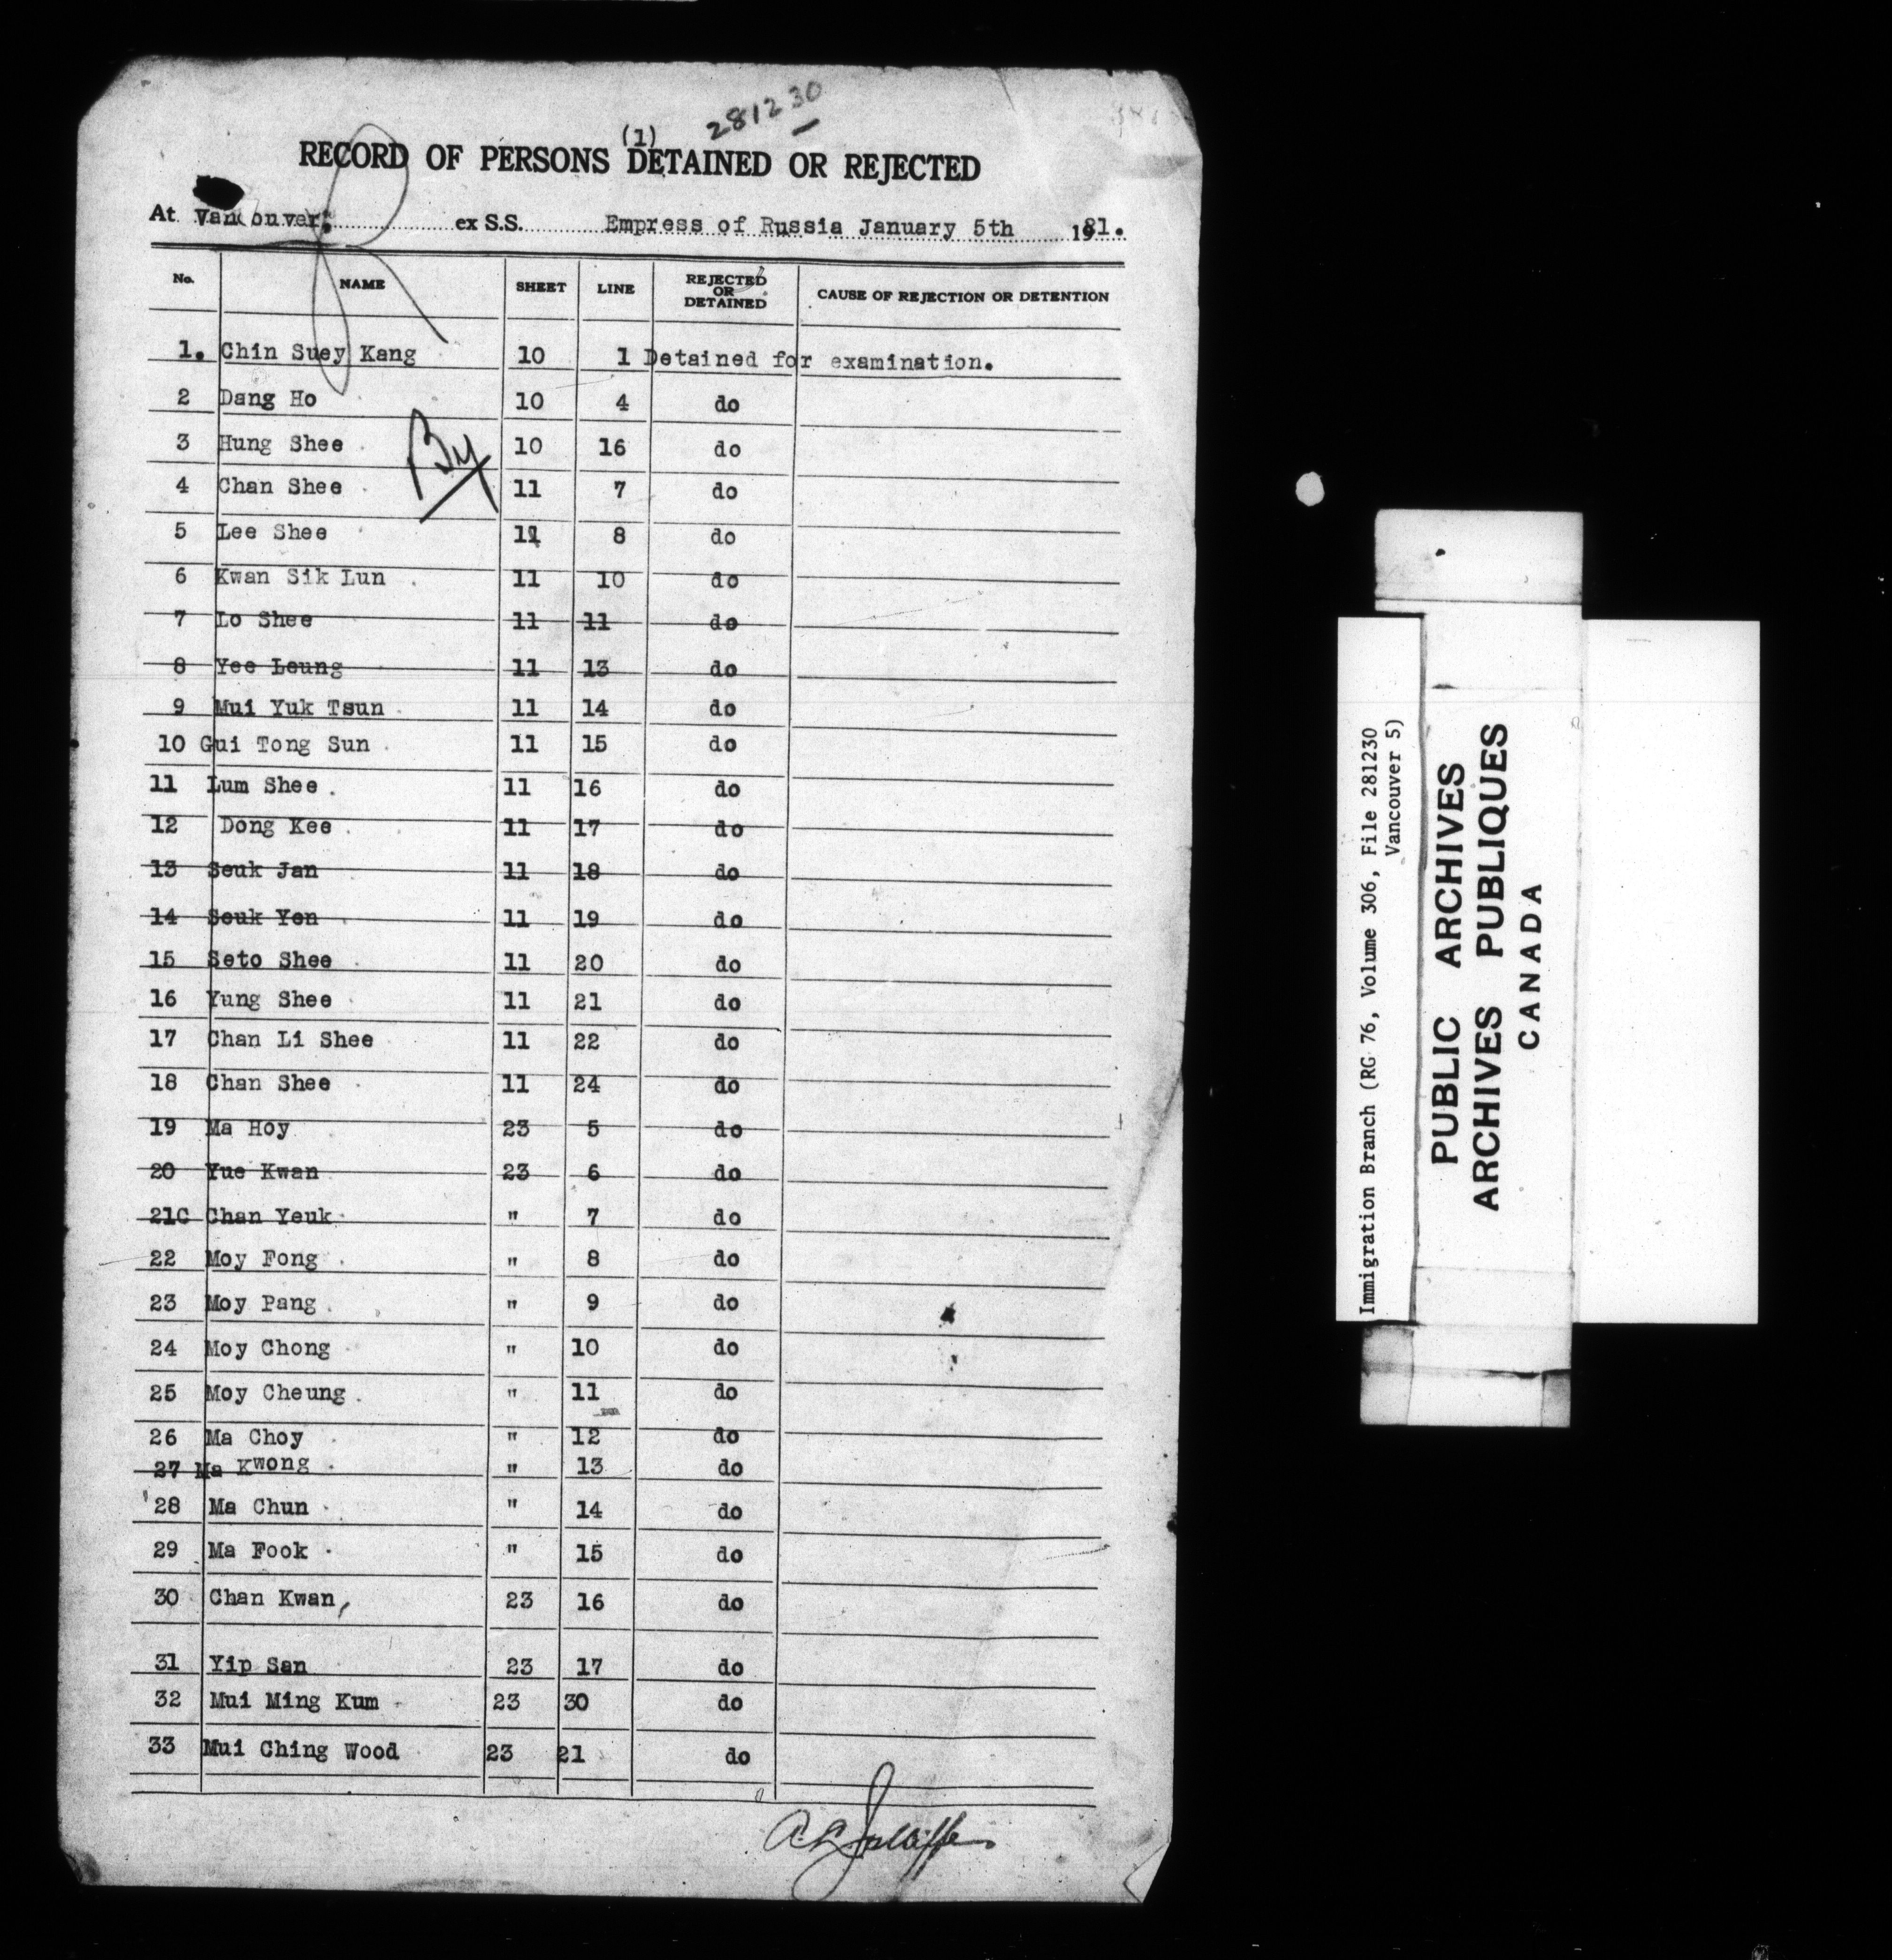 281230
(1)
RECORD OF PERSONS DETAINED OR REJECTED
At Vancouver, ex S.S. Empress of Russia January 5th 1981.
No. NAME SHEET LINE REJECTED OR DETAINED CAUSE OF REJECTION OR DETENTION
1. Chin Suey Kang 10 1 Detained for examination.
2 Dang Ho 10 4 do
3 Hung Shee 10 16 do
4 Chan Shee 11 7 do
5 Lee Shee 11 8 do
6 Kwan Sik Lun 11 10 do
7 Lo Shee 11 11 do
8 Yee Leung 11 13 do
9 Mui Yuk Tsun 11 14 do
10 Gui Tong Sun 11 15 do
11 Lum Shee 11 16 do
12 Dong Kee 11 17 do
13 Seuk Jan 11 18 do
14 Seuk Yen 11 19 do
15 Seto Shee 11 20 do
16 Yung Shee 11 21 do
17 Chan Li Shee 11 22 do
18 Chan Shee 11 24 do
19 Ma Hoy 23 5 do
20 Yue Kwan 23 6 do
21C Chan Yeuk " 7 do
22 Moy Fong " 8 do
23 Moy Pang " 9 do
24 Moy Chong " 10 do
25 Moy Cheung " 11 do
26 Ma Choy " 12 do
27 Ma Kwong " 13 do
28 Ma Chun " 14 do
29 Ma Fook " 15 do
30 Chan Kwan, 23 16 do
31 Yip San 23 17 do
32 Mui Ming Kum 23 30 do
33 Mui Ching Wood 23 21 do
Immigration Branch (RG 76, Volume 306, File 281230
Vancouver 5)
PUBLIC ARCHIVES
ARCHIVES PUBLIQUES
CANADA